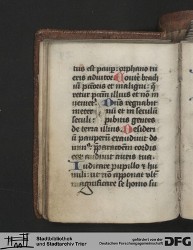 tuus est paup: orphano tu
eris adiutor Contere brach
ium pctoris et maligni: q
retur pctm illius et nō in
uenietʳ Dns regnabit
eternū et in seculū
seculi: peribitis gentes
de terra illius Desideriū
pauperū exaudiuit do
minꝰ: pparationem cordis
eorū audiuit auris tua
Iudicare pupillo et hu
mili: ut nō apponat vltʳ
magnificare se homo su
Stadtbibliothek
und Stadtarchiv Trier
gefördert von der
Deutschen Forschungsgemeinschaft
DFG